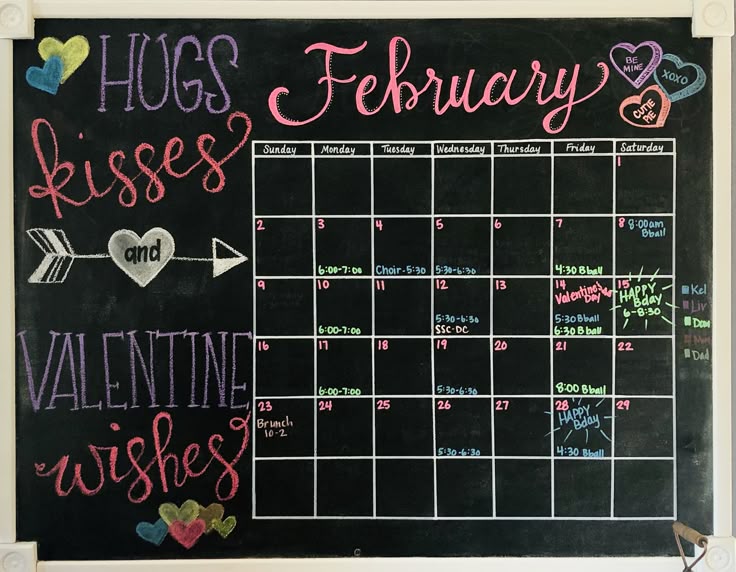 HUGS
kisses
and
VALENTINE
wishes
February
BE
MINE
XOXO
CUTIE
PIE
Sunday Monday Tuesday Wednesday Thursday Friday Saturday
1
2 3 4 5 6 7 8 8:00am
Bball
6:00-7:00 Choir-5:30 5:30-6:30 4:30 Bball
9 10 11 12 13 14 15
Valentine's
Day
HAPPY
Bday
6-8:30
6:00-7:00 5:30-6:30 5:30 Bball
SSC-DC 6:30 Bball
16 17 18 19 20 21 22
6:00-7:00 5:30-6:30 8:00 Bball
23 24 25 26 27 28 29
Brunch
10-2
HAPPY
Bday
5:30-6:30 4:30 Bball
Kel
Liv
Dad